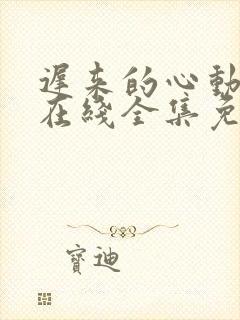 遲来的心動
在綫全集免
寶迪